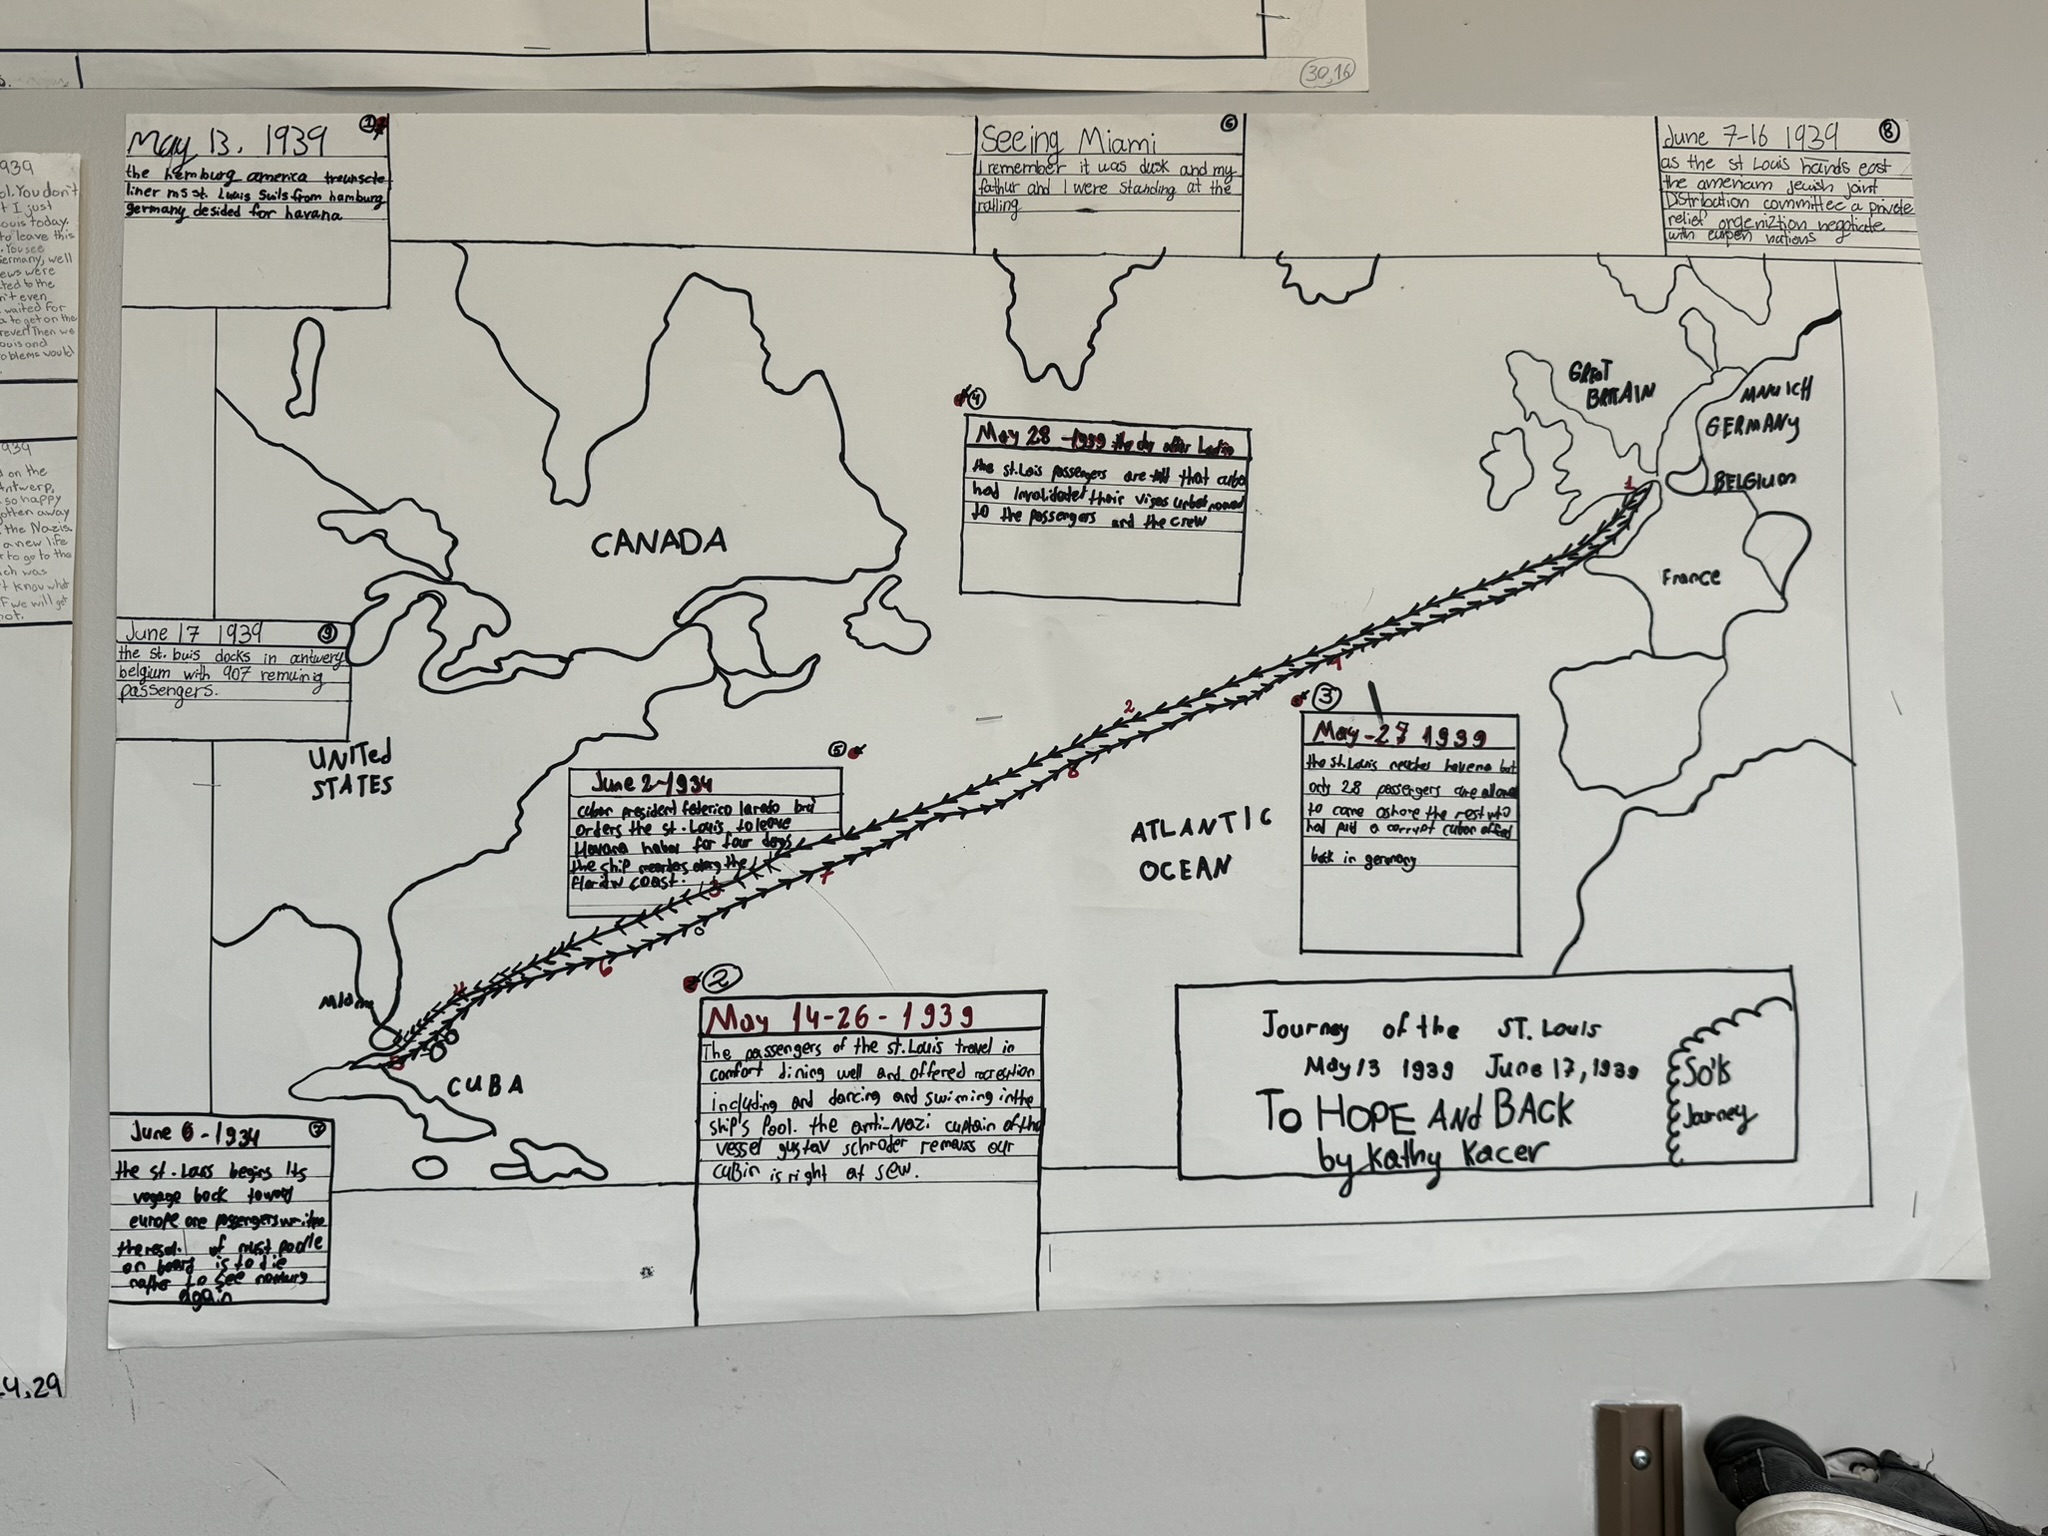 30,16
May 13, 1939
1
the hemburg america
liner ms st. Louis Suils from hamburg
germany desided for havana
Seeing Miami
6
I remember it was dusk and my
fathur and I were standing at the
ratling
June 7-16 1939
8
as the st Louis hands east
the amerian jewish joint
Distribation committee a private
relief orgeniztion negotiate
with nations
939
ol. You don't
t I just
ouis today.
to leave this
. You see
Germany, well
ews were
ted to the
n't even
waited for
a to get on the
rever! Then we
ouis and
oblems would
939
d on the
Antwerp,
so happy
otten away
the Nazis.
a new life
r to go to the
ich was
t know what
f we will get
not.
4,29
GREAT
BRITAIN
GERMANY
BELGIUM
France
1
4
May 28 -1939 the day after
the st.Lois passengers are told that cuba
had invalidated their visas
to the passengers and the crew
CANADA
June 17 1939
9
the st. buis docks in antwerp
belgium with 907 remuing
passengers.
UNITED
STATES
5
June 2-1934
cuban president federico laredo bru
orders the st. Louis to leave
Havana habor for four days
the ship along the
coast.
2
1
8
7
3
6
4
5
3
May-27 1939
the st.Louis reaches havena but
only 28 passengers are allowed
to come ashore the rest who
had paid a corrupt cuban
back in germany
ATLANTIC
OCEAN
Miami
CUBA
2
May 14-26-1939
The passengers of the st.Louis travel in
comfort dining well and offered recreation
including and dancing and swiming in the
ship's Pool. the anti-Nazi captain of the
vessel gustav schroder remauss our
cubin is right at sew.
Journey of the ST. Louis
May 13 1939 June 17, 1939
TO HOPE AND BACK
by Kathy Kacer
Sol's
Journey
7
June 6-1934
the st. Lous begins Its
voyage back toward
europe one passengers
of most
on board is to die
to see
again